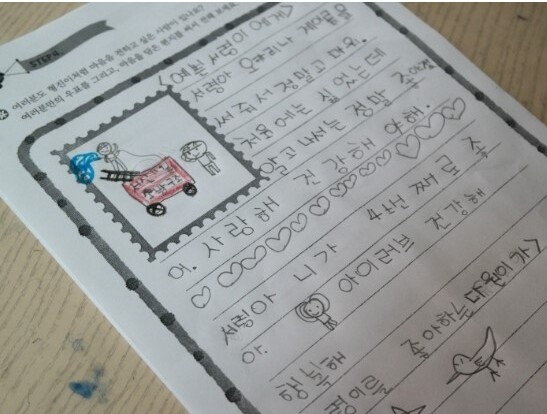 STEP4
여러분도 형진이처럼 마음을 전하고 싶은 사람이 있나요?
여러분만의 우표를 그리고, 마음을 담은 편지를 써서 전해 보세요
<예쁜 서링이에게>
서링아
써 줘서 정말 고마워.
처음에는 싫었는데
알고 나서는 정말 좋아졌
어. 사랑해 건강해야해.
서링아 니가 4번째로 좋
아. 아이러브 건강해
행복해
좋아하는